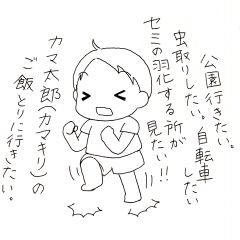 公園行きたい。
虫取りしたい。自転車したい
セミの羽化する所が見たい!!
カマ太郎(カマキリ)の
ご飯とりに行きたい。